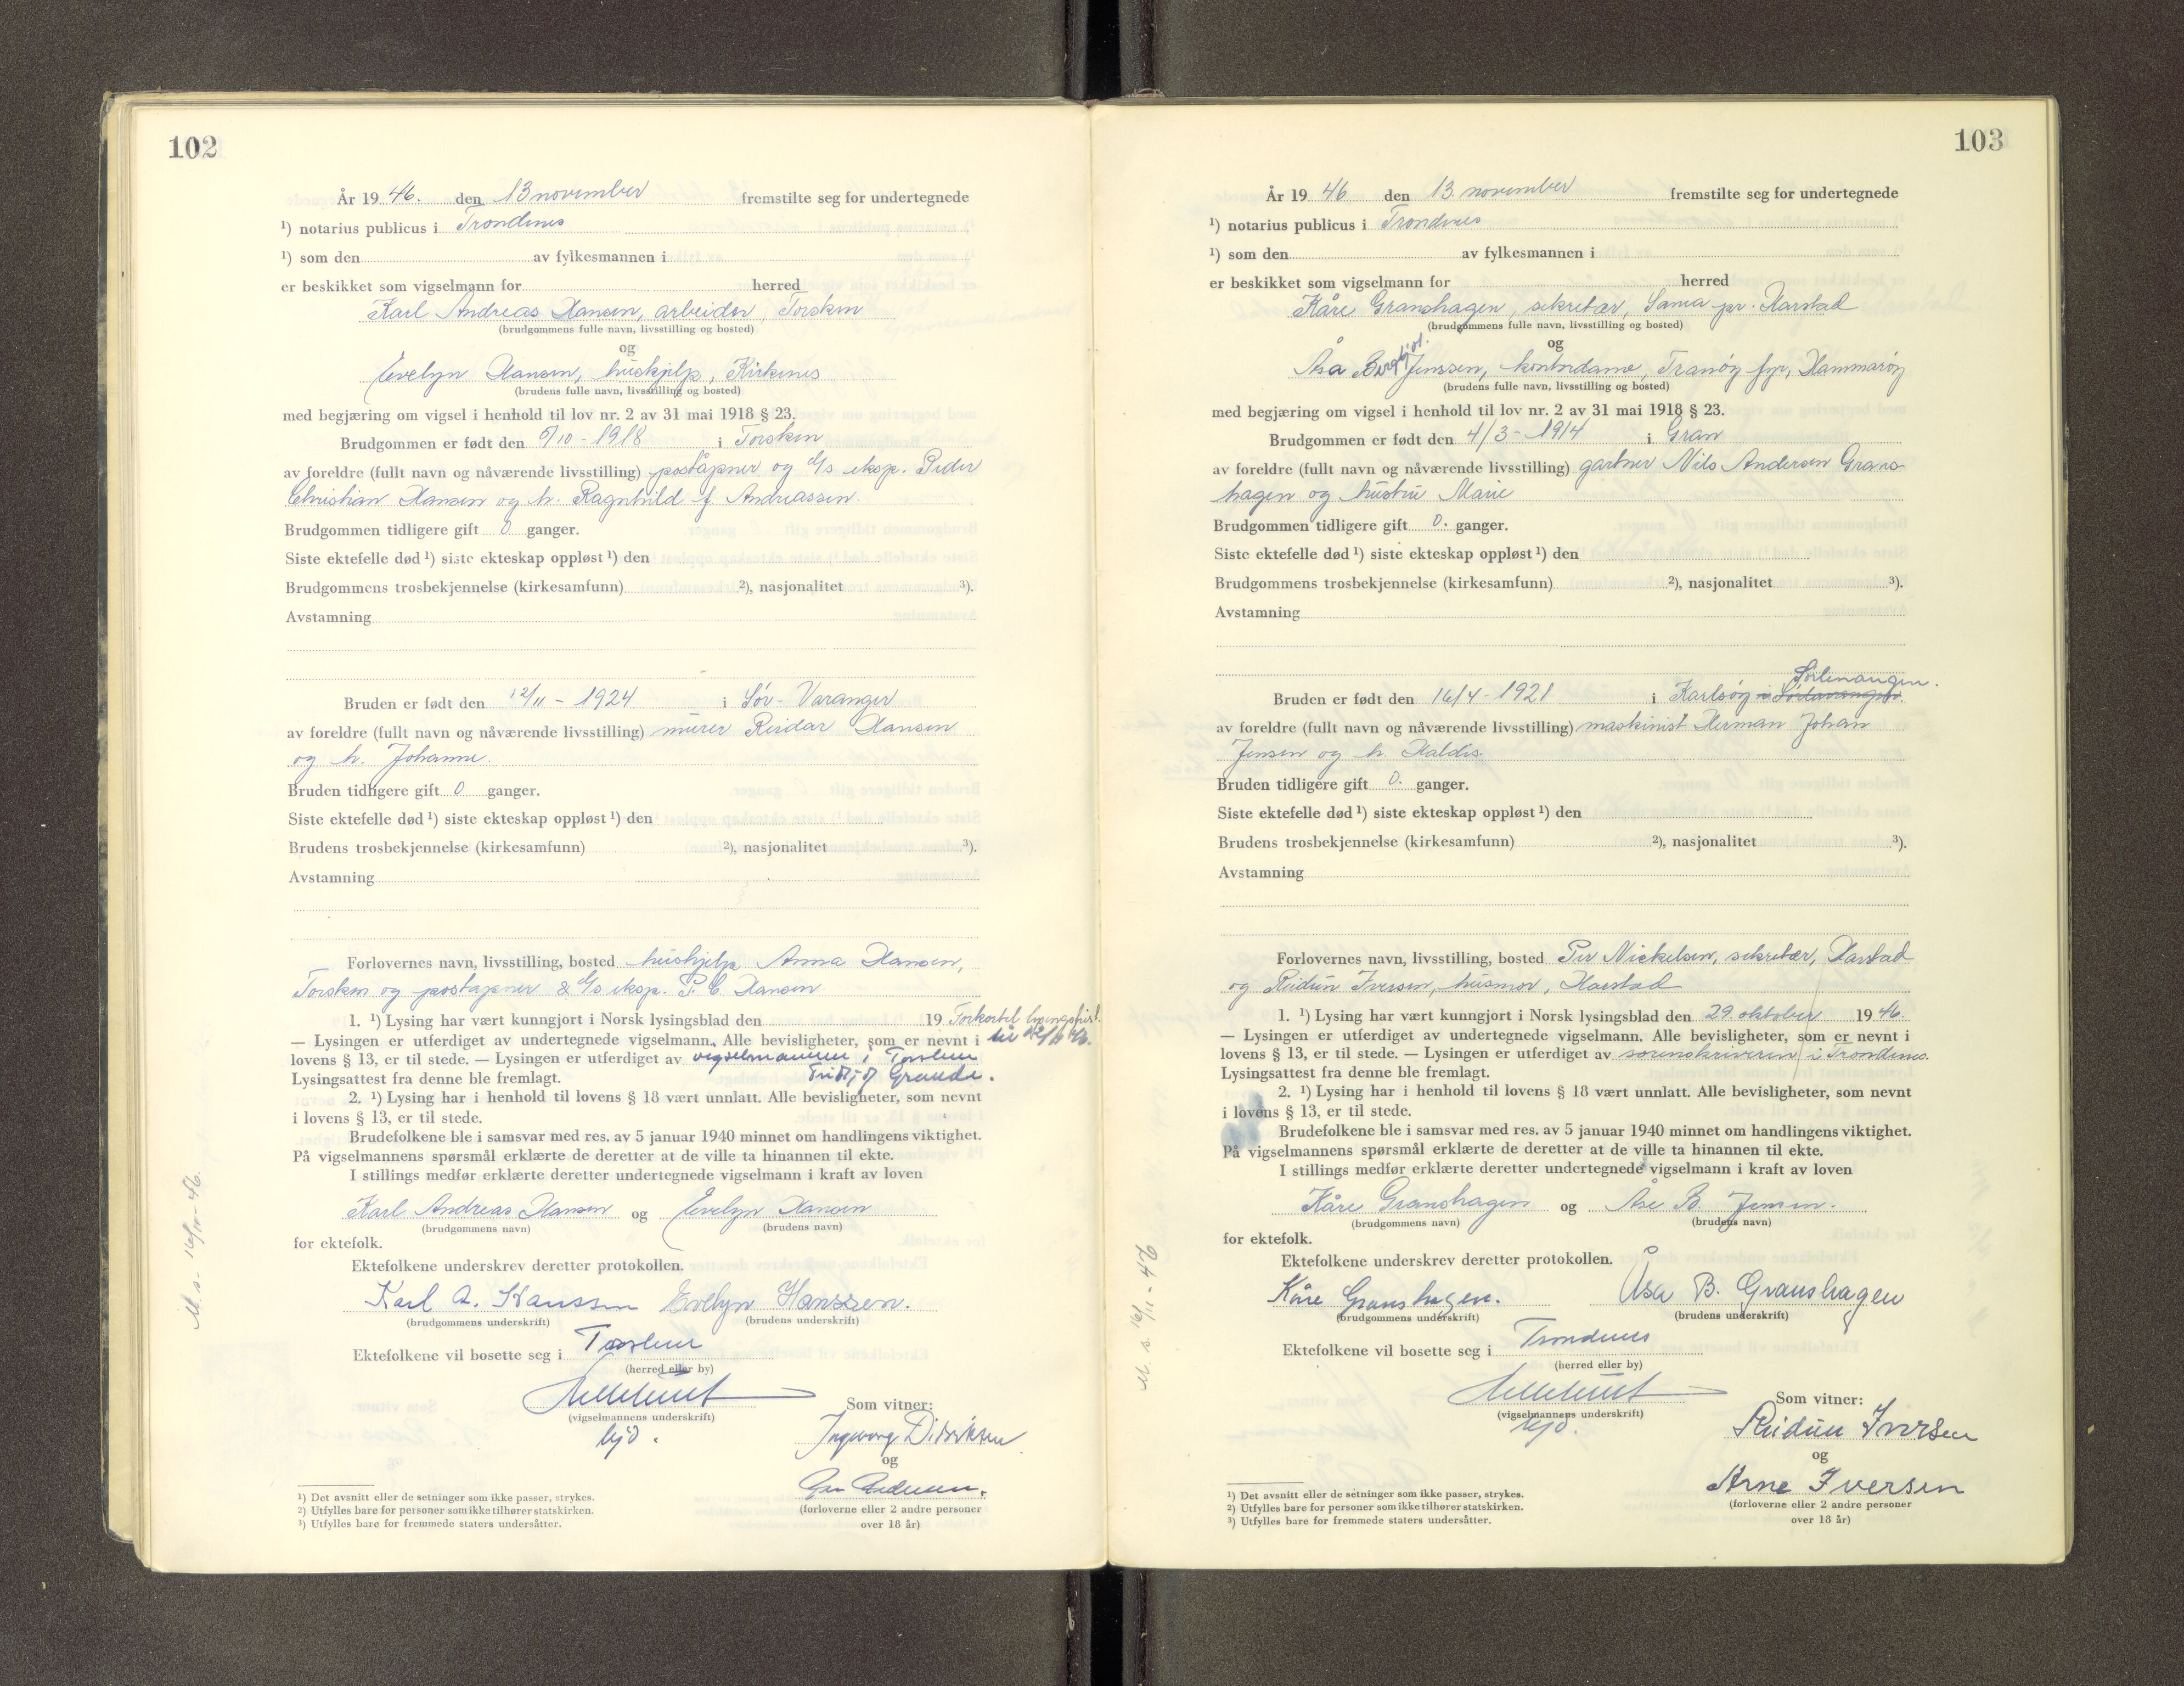 102
År 19 46. den 13 november fremstilte seg for undertegnede
¹) notarius publicus i Trondenes
¹) som den av fylkesmannen i
er beskikket som vigselmann for herred
Karl Andreas Hansen, arbeider, Torsken
(brudgommens fulle navn, livsstilling og bosted)
og
Evelyn Hansen, hushjelp, Kirkenes
(brudens fulle navn, livsstilling og bosted)
med begjæring om vigsel i henhold til lov nr. 2 av 31 mai 1918 § 23.
Brudgommen er født den 5/10 - 1918 i Torsken
av foreldre (fullt navn og nåværende livsstilling) poståpner og d/s eksp. Peder
Christian Hansen og h. Ragnhild f. Andreassen.
Brudgommen tidligere gift 0 ganger.
Siste ektefelle død ¹) siste ekteskap oppløst ¹) den
Brudgommens trosbekjennelse (kirkesamfunn) ²), nasjonalitet ³).
Avstamning
Bruden er født den 12/11 - 1924 i Sør-Varanger
av foreldre (fullt navn og nåværende livsstilling) murer Reidar Hansen
og h. Johanne.
Bruden tidligere gift 0 ganger.
Siste ektefelle død ¹) siste ekteskap oppløst ¹) den
Brudens trosbekjennelse (kirkesamfunn) ²), nasjonalitet ³).
Avstamning
Forlovernes navn, livsstilling, bosted hushjelp Anna Hansen,
Torsken og poståpner & d/s eksp. P. C. Hansen
1. ¹) Lysing har vært kunngjort i Norsk lysingsblad den 19 Forkortet lysingsfrist
— Lysingen er utferdiget av undertegnede vigselmann. Alle bevisligheter, som er nevnt i til 12/11 46.
lovens § 13, er til stede. — Lysingen er utferdiget av vigselmannen i Torsken
Lysingsattest fra denne ble fremlagt. Fridtjof Grande.
2. ¹) Lysing har i henhold til lovens § 18 vært unnlatt. Alle bevisligheter, som nevnt
i lovens § 13, er til stede.
Brudefolkene ble i samsvar med res. av 5 januar 1940 minnet om handlingens viktighet.
På vigselmannens spørsmål erklærte de deretter at de ville ta hinannen til ekte.
I stillings medfør erklærte deretter undertegnede vigselmann i kraft av loven
Karl Andreas Hansen og Evelyn Hansen
(brudgommens navn) (brudens navn)
for ektefolk.
Ektefolkene underskrev deretter protokollen.
Karl A. Hanssen Evelyn Hanssen.
(brudgommens underskrift) (brudens underskrift)
Ektefolkene vil bosette seg i Torsken
(herred eller by)
(vigselmannens underskrift)
Som vitner:
Ingeborg Didriksen
og
(forloverne eller 2 andre personer
over 18 år)
¹) Det avsnitt eller de setninger som ikke passer, strykes.
²) Utfylles bare for personer som ikke tilhører statskirken.
³) Utfylles bare for fremmede staters undersåtter.
M. s. 16/11-46.
103
År 19 46 den 13 november fremstilte seg for undertegnede
¹) notarius publicus i Trondenes
¹) som den av fylkesmannen i
er beskikket som vigselmann for herred
Kåre Granshagen, sekretær, Sama pr. Harstad
(brudgommens fulle navn, livsstilling og bosted)
og
Åsa Bergljot Jenssen, kontordame, Tranøy fyr, Hammarøy
(brudens fulle navn, livsstilling og bosted)
med begjæring om vigsel i henhold til lov nr. 2 av 31 mai 1918 § 23.
Brudgommen er født den 4/3 - 1914 i Gran
av foreldre (fullt navn og nåværende livsstilling) gartner Nils Andersen Grans-
hagen og hustru Marie
Brudgommen tidligere gift 0. ganger.
Siste ektefelle død ¹) siste ekteskap oppløst ¹) den
Brudgommens trosbekjennelse (kirkesamfunn) ²), nasjonalitet ³).
Avstamning
Sørlenangen.
Bruden er født den 16/4 - 1921 i Karlsøy
av foreldre (fullt navn og nåværende livsstilling) maskinist Herman Johan
Jensen og h. Haldis.
Bruden tidligere gift 0. ganger.
Siste ektefelle død ¹) siste ekteskap oppløst ¹) den
Brudens trosbekjennelse (kirkesamfunn) ²), nasjonalitet ³).
Avstamning
Forlovernes navn, livsstilling, bosted Per Nickelsen, sekretær, Harstad
og Reidun Iversen, husmor, Harstad
1. ¹) Lysing har vært kunngjort i Norsk lysingsblad den 29. oktober 19 46.
— Lysingen er utferdiget av undertegnede vigselmann. Alle bevisligheter, som er nevnt i
lovens § 13, er til stede. — Lysingen er utferdiget av sorenskriveren i Trondenes.
Lysingsattest fra denne ble fremlagt.
2. ¹) Lysing har i henhold til lovens § 18 vært unnlatt. Alle bevisligheter, som nevnt
i lovens § 13, er til stede.
Brudefolkene ble i samsvar med res. av 5 januar 1940 minnet om handlingens viktighet.
På vigselmannens spørsmål erklærte de deretter at de ville ta hinannen til ekte.
I stillings medfør erklærte deretter undertegnede vigselmann i kraft av loven
Kåre Granshagen og Åse B. Jensen.
(brudgommens navn) (brudens navn)
for ektefolk.
Ektefolkene underskrev deretter protokollen.
Kåre Granshagen. Åsa B. Granshagen
(brudgommens underskrift) (brudens underskrift)
Ektefolkene vil bosette seg i Trondenes
(herred eller by)
(vigselmannens underskrift)
Som vitner:
Reidun Iversen
og
Arne Iversen
(forloverne eller 2 andre personer
over 18 år)
¹) Det avsnitt eller de setninger som ikke passer, strykes.
²) Utfylles bare for personer som ikke tilhører statskirken.
³) Utfylles bare for fremmede staters undersåtter.
M. s. 16/11-46